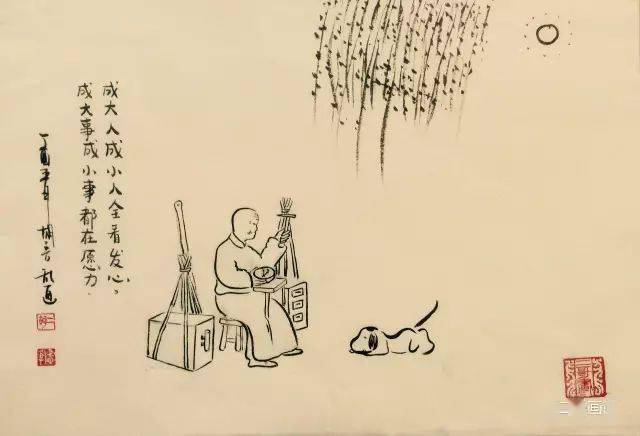 成大人成小人全看发心。
成大事成小事都在愿力.
丁酉年